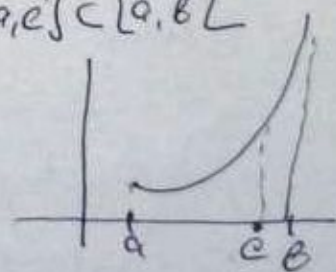 a,c] ⊂ [a, b[
a c b